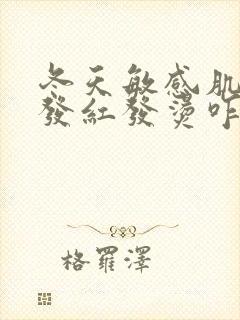 冬天敏感肌
發紅發燙咋
格羅澤